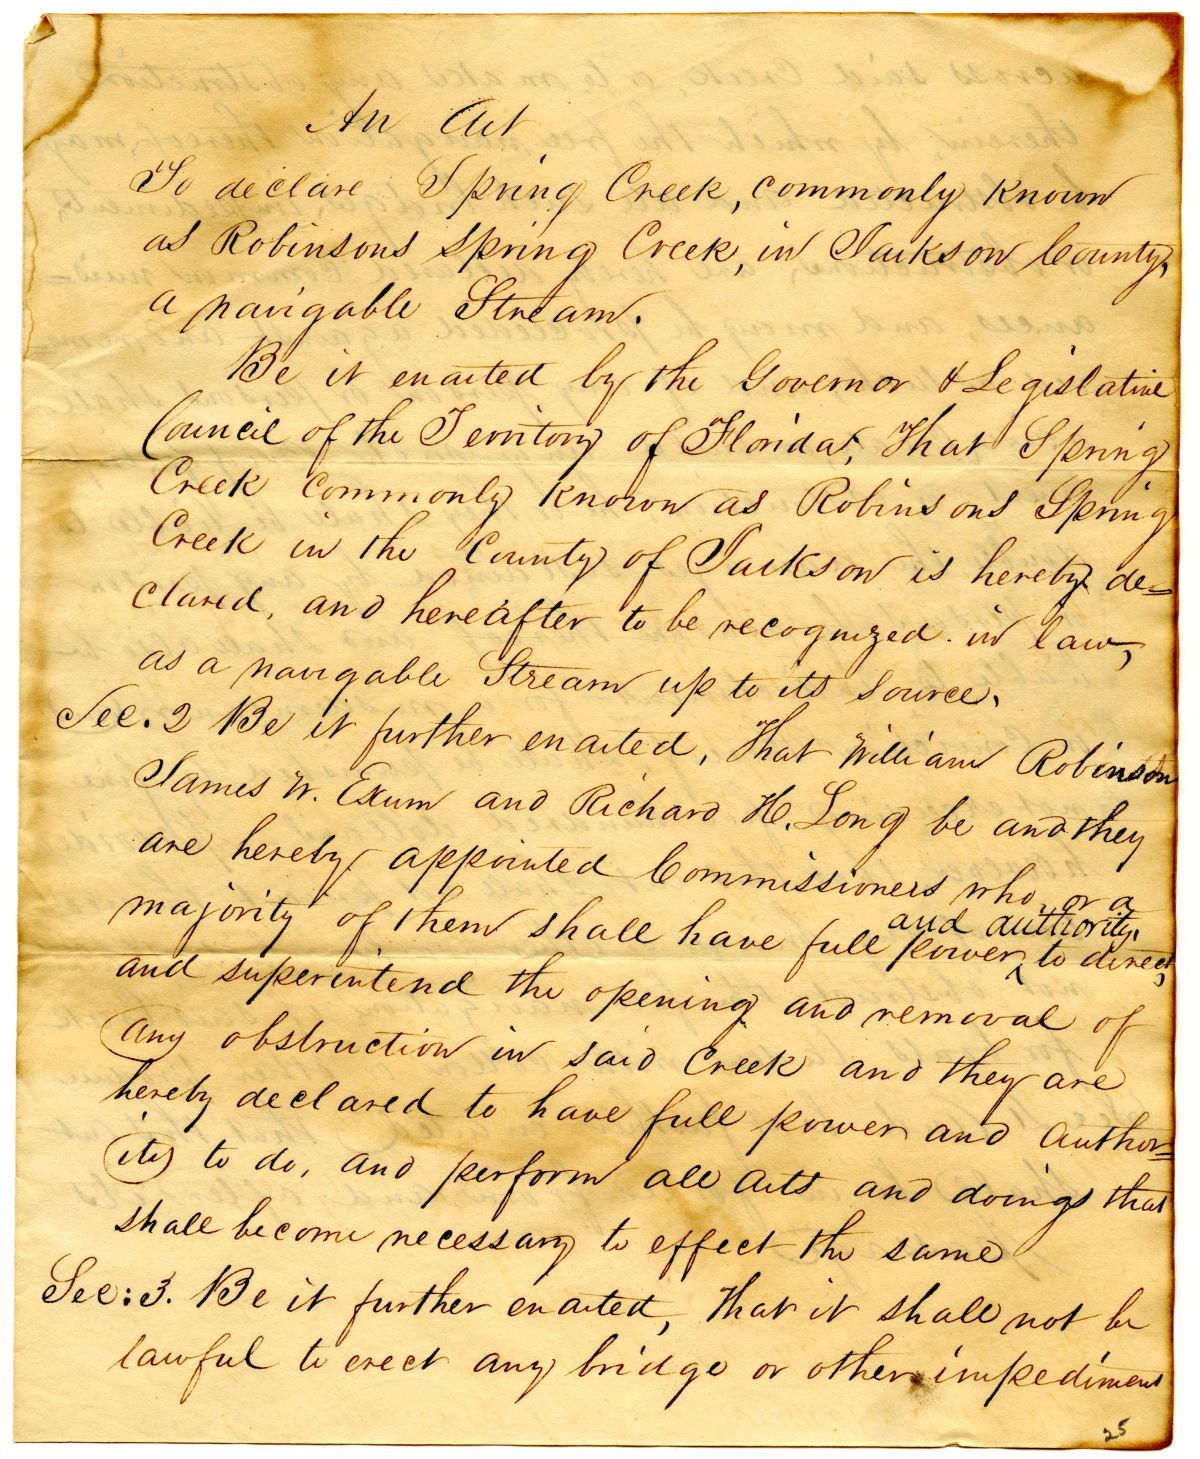 An Act
To declare Spring Creek, commonly known
as Robinsons Spring Creek, in Jackson County,
a navigable Stream.
Be it enacted by the Governor & Legislative
Council of the Territory of Florida, That Spring
Creek commonly known as Robinsons Spring
Creek in the County of Jackson is hereby de=
clared, and hereafter to be recognized in law,
as a navigable Stream up to its source.
Sec. 2 Be it further enacted, That William Robinson
James W. Exum and Richard H. Long be and they
are hereby appointed Commissioners who, or a
and authority,
majority of them shall have full power, ^ to direct,
and superintend the opening and removal of
any obstruction in said Creek and they are
hereby declared to have full power and author=
ity to do, and perform all acts and doings that
shall become necessary to effect the same
Sec: 3. Be it further enacted, that it shall not be
lawful to erect any bridge or other impediment
25